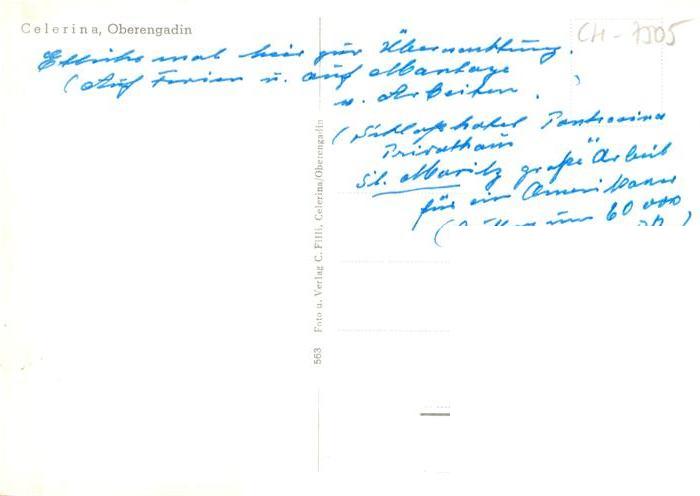 Celerina, Oberengadin
CH - 7505
Etliche mal hier zur Übernachtung.
(Auf Ferien u. auf Montage
u. Arbeiten.)
(Schloßhotel Pontresina
Privathaus
St. Moritz große Arbeit
für ein Amerikaner
( 60 000
563 Foto u. Verlag C. Filli, Celerina/Oberengadin